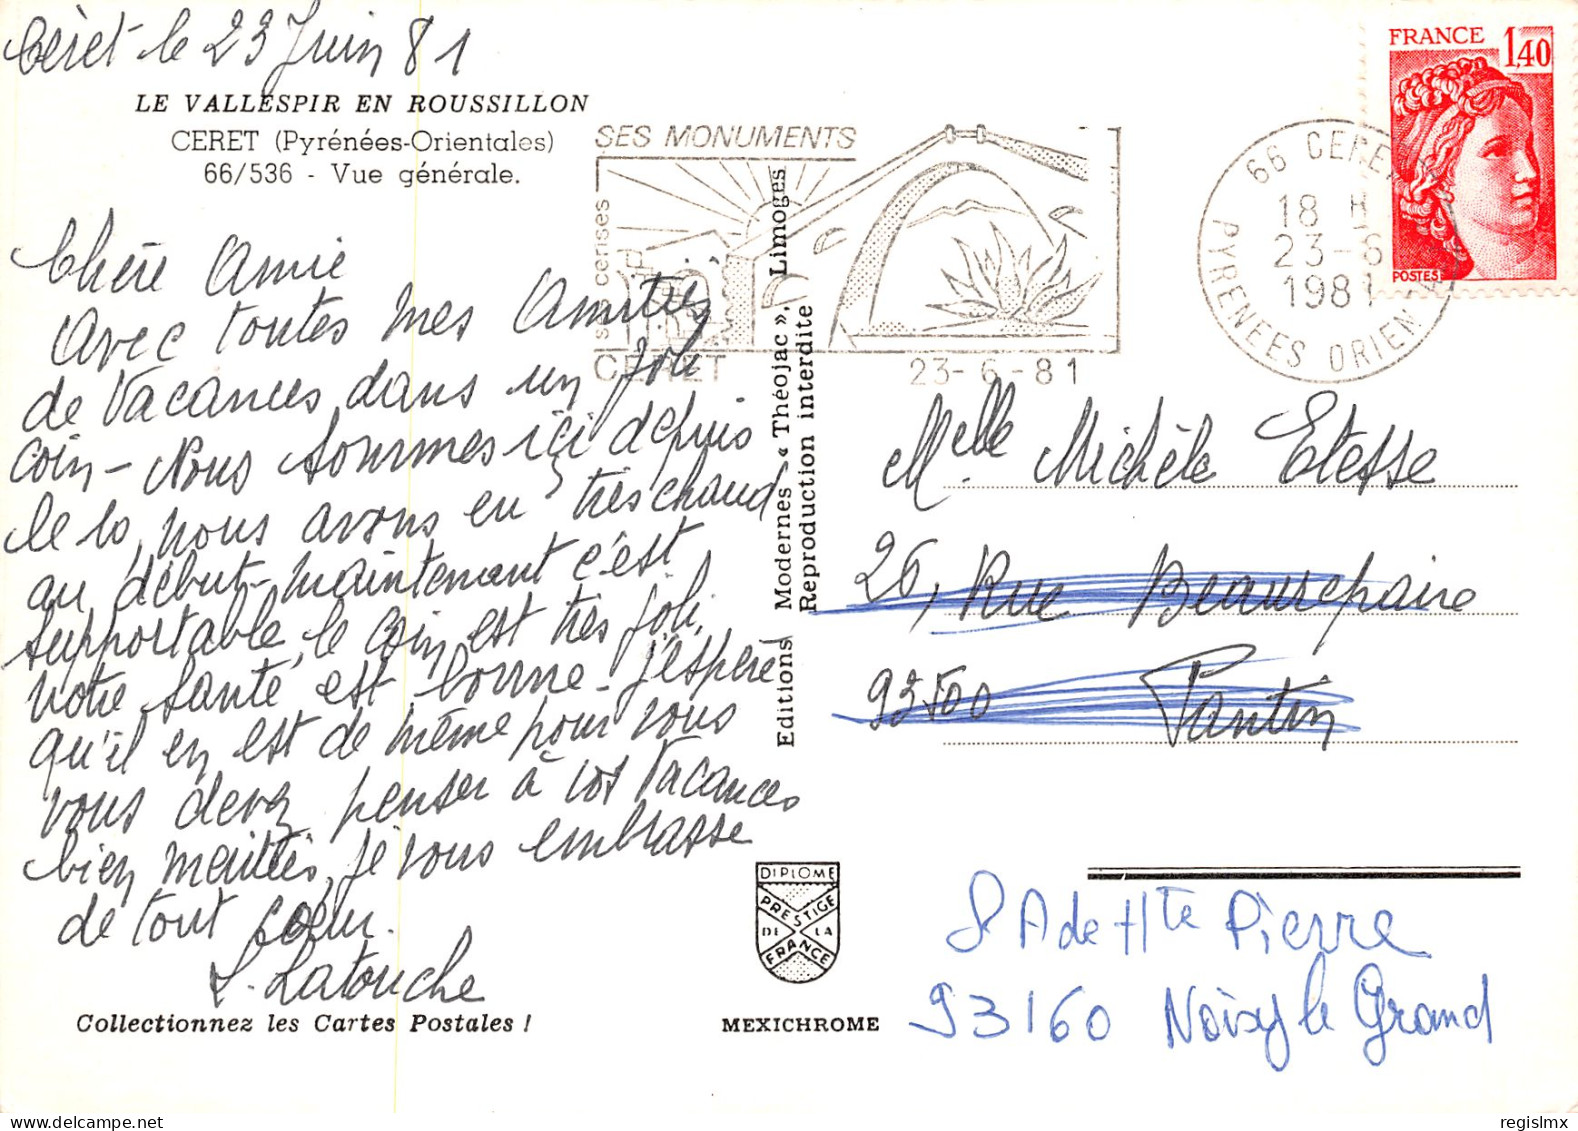 Cèret le 23 Juin 81
LE VALLESPIR EN ROUSSILLON
CERET (Pyrénées-Orientales)
66/536 - Vue générale.
Chère Amie
Avec toutes mes Amitiés
de Vacances dans un joli
coin - Nous sommes ici depuis
le 10, nous avons eu très chaud
au début - maintenant c'est
supportable, le coin est très joli,
votre santé est bonne - j'espère
qu'il en est de même pour vous
vous devez penser à vos Vacances
bien méritées, je vous embrasse
de tout coeur.
L. Latouche
Collectionnez les Cartes Postales !
SES MONUMENTS
ses cerises
CERET
23-6-81
66 CERET
18 H
23-6
1981
PYRENEES ORIEN
FRANCE 1,40
POSTES
Editions Modernes « Théojac », Limoges
Reproduction interdite
Melle Michèle Etesse
26, Rue Beaurepaire
93500 Pantin
Ade Hte Pierre
93160 Noisy le Grand
DIPLOME
PRESTIGE
DE LA
FRANCE
MEXICHROME
regislmx